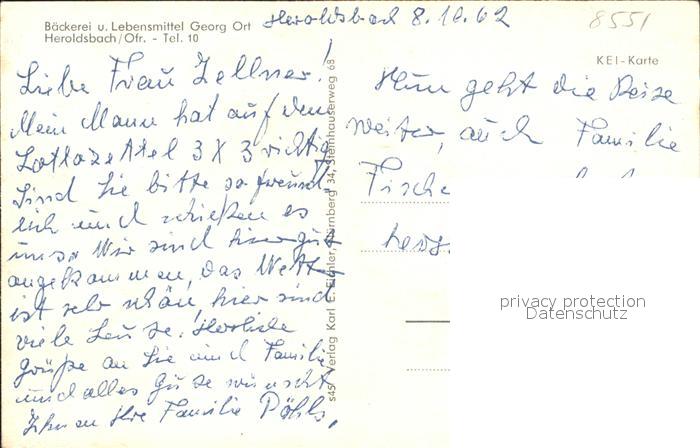 Bäckerei u. Lebensmittel Georg Ort
Heroldsbach/Ofr. - Tel. 10
Heroldsbach 8.10.62
8551
KEI-Karte
Liebe Frau Zellner!
Mein Mann hat auf dem
Lottozettel 3 X 3 richtig
Sind Sie bitte so freund
lich und schicken es
uns. Wir sind hier gut
angekommen, das Wetter
ist sehr schön, hier sind
viele Leute. Herzliche
Grüße an Sie und Familie
und alles Gute wünscht
Ihnen Ihre Familie Pöhls,
Nun geht die Reise
weiter, auch Familie
Fische
S45/ Verlag Karl E. Eichler, Nürnberg 34, Steinhauserweg 68
privacy protection
Datenschutz